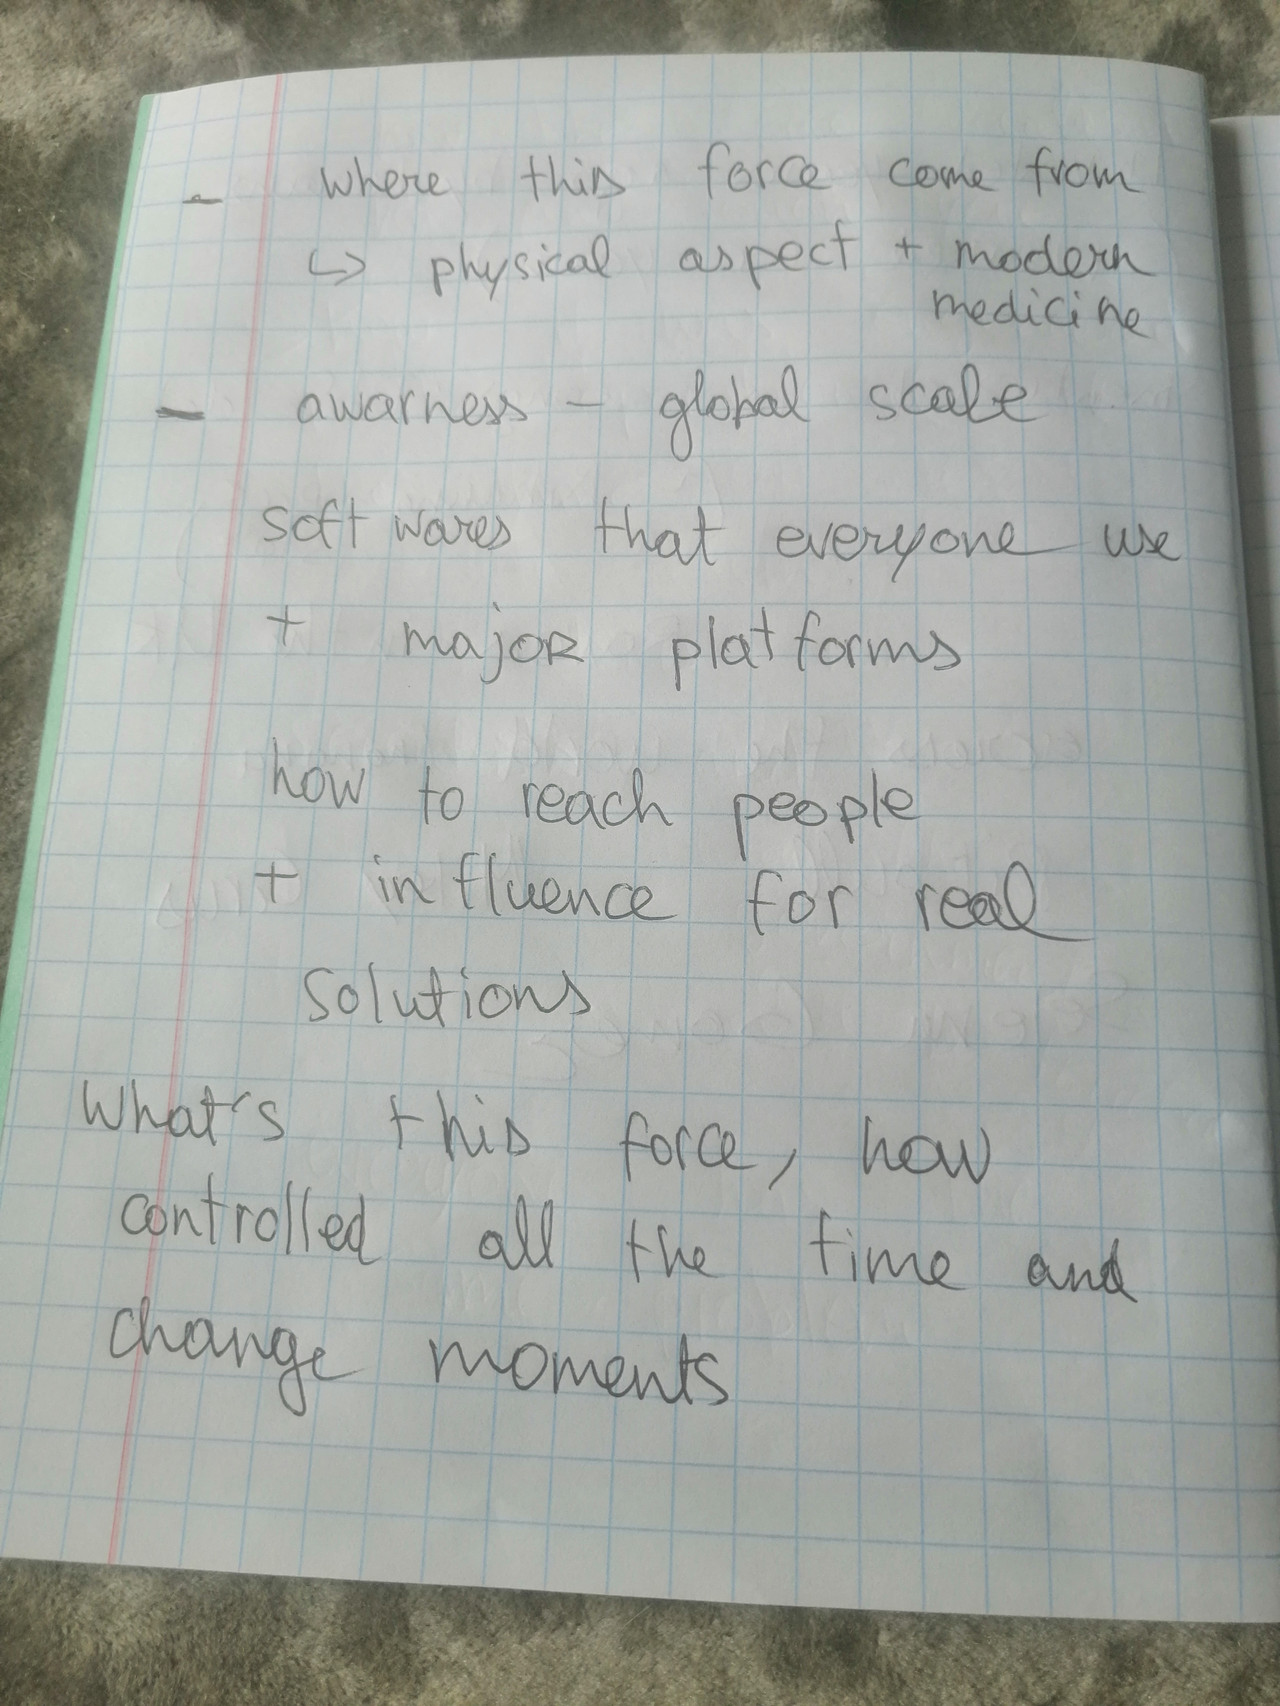 - where this force come from
↳ physical aspect + modern
medicine
- awarness - global scale
soft wares that everyone use
+ major platforms
how to reach people
+ influence for real
solutions
What's this force, how
controlled all the time and
change moments